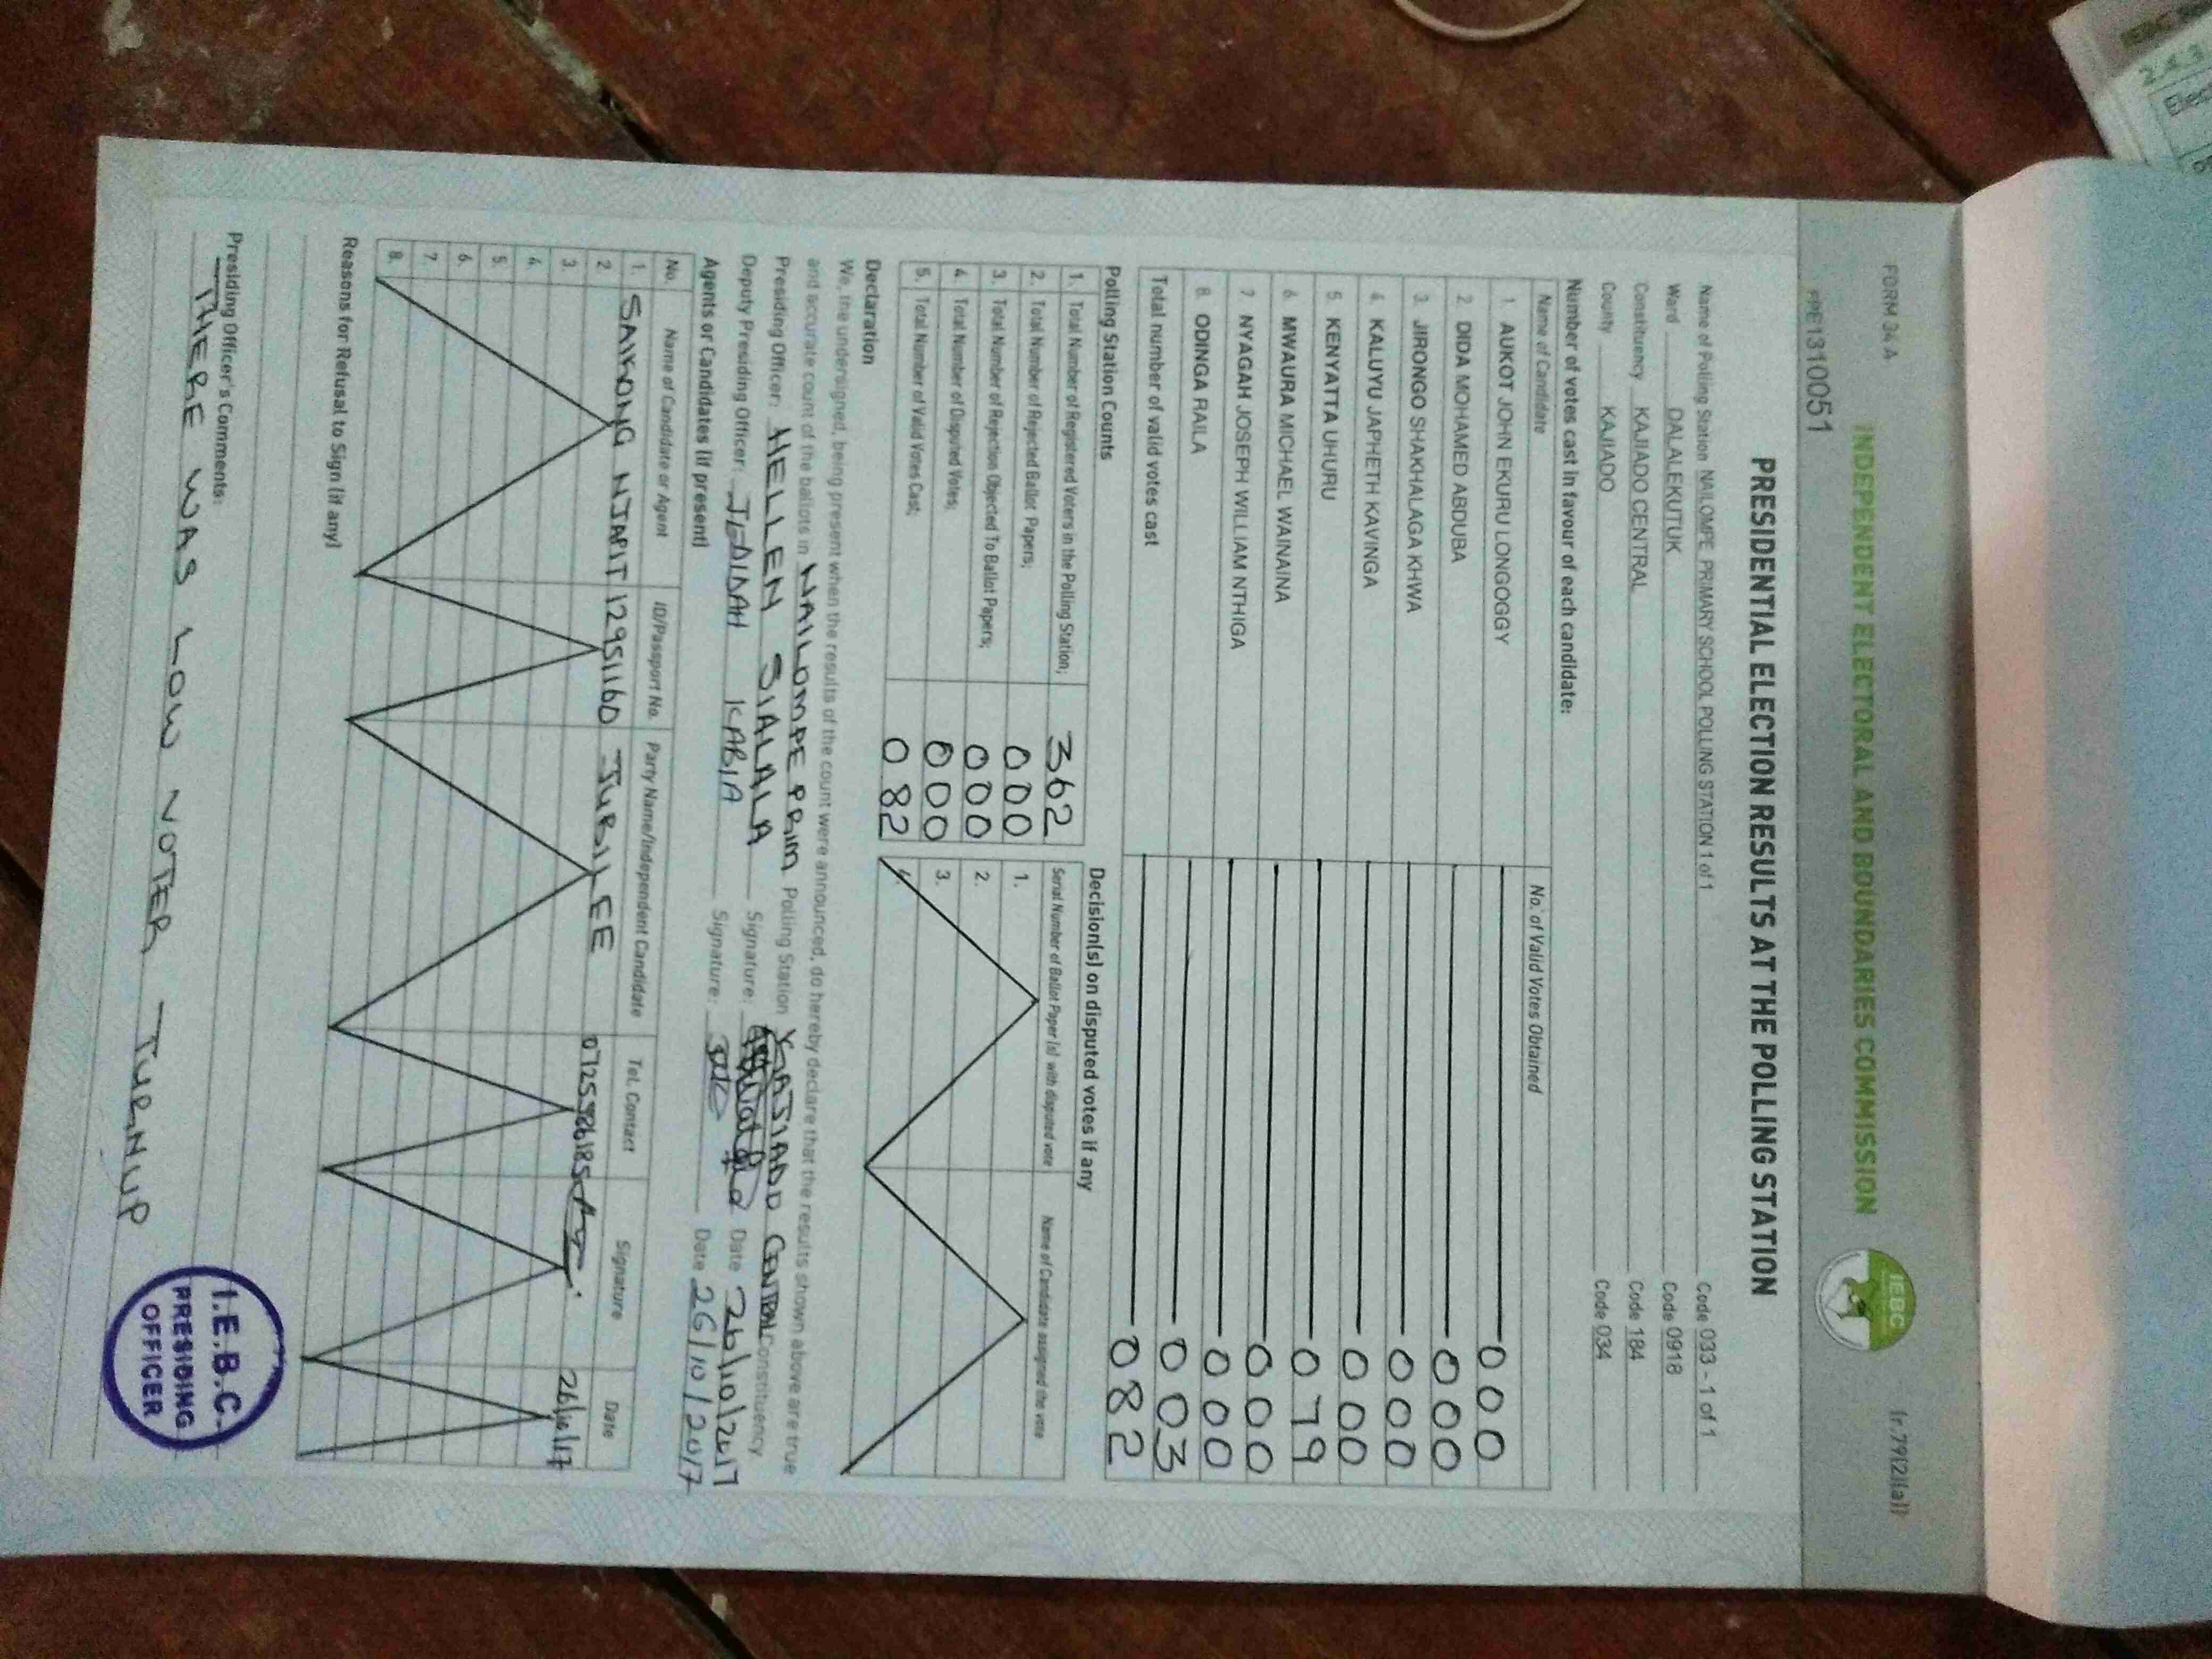 FORM 34 A
(r.79(2)(a))
INDEPENDENT ELECTORAL AND BOUNDARIES COMMISSION
IEBC
PPE1310051
PRESIDENTIAL ELECTION RESULTS AT THE POLLING STATION
Name of Polling Station NAILOMPE PRIMARY SCHOOL POLLING STATION 1 of 1 Code 033 - 1 of 1
Ward DALALEKUTUK Code 0918
Constituency KAJIADO CENTRAL Code 184
County KAJIADO Code 034
Number of votes cast in favour of each candidate:
Name of Candidate No. of Valid Votes Obtained
1. AUKOT JOHN EKURU LONGOGGY 000
2. DIDA MOHAMED ABDUBA 000
3. JIRONGO SHAKHALAGA KHWA 000
4. KALUYU JAPHETH KAVINGA 000
5. KENYATTA UHURU 079
6. MWAURA MICHAEL WAINAINA 000
7. NYAGAH JOSEPH WILLIAM NTHIGA 000
8. ODINGA RAILA 003
Total number of valid votes cast 082
Polling Station Counts
1. Total Number of Registered Voters in the Polling Station; 362
2. Total Number of Rejected Ballot Papers; 000
3. Total Number of Rejection Objected To Ballot Papers; 000
4. Total Number of Disputed Votes; 000
5. Total Number of Valid Votes Cast; 082
Decision(s) on disputed votes if any
Serial Number of Ballot Paper (s) with disputed vote Name of Candidate assigned the vote
1.
2.
3.
4.
Declaration
We, the undersigned, being present when the results of the count were announced, do hereby declare that the results shown above are true
and accurate count of the ballots in NAILOMPE PRIM Polling Station KAJIADO CENTRAL Constituency
Presiding Officer: HELLEN SIALALA Signature: Date 26/10/2017
Deputy Presiding Officer: JEDIDAH KABIA Signature: Date 26/10/2017
Agents or Candidates (if present)
No. Name of Candidate or Agent ID/Passport No. Party Name/Independent Candidate Tel. Contact Signature Date
1. SAIKONG NJAPIT 12951160 JUBILEE 26/10/17
2.
3.
4.
5.
6.
7.
8.
Reasons for Refusal to Sign (if any)
Presiding Officer's Comments:
THERE WAS LOW VOTER TURNUP
I.E.B.C.
PRESIDING
OFFICER